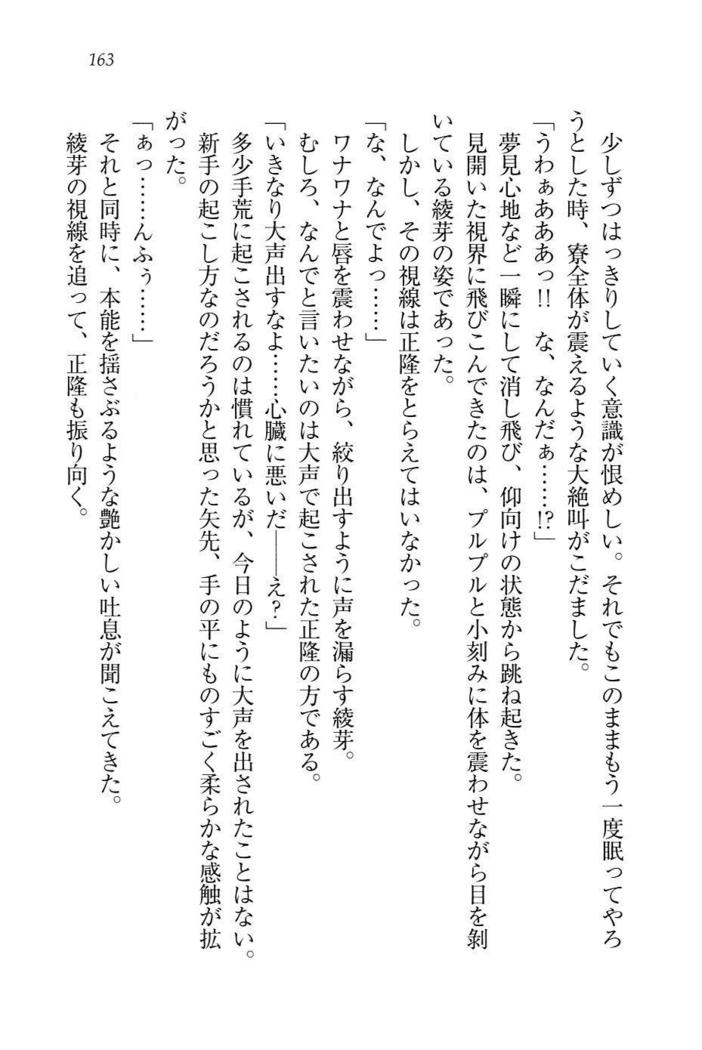 163
少しずつはっきりしていく意識が恨めしい。それでもこのままもう一度眠ってやろ
うとした時、寮全体が震えるような大絶叫がこだました。
「うわぁあああっ!!　な、なんだぁ……!?」
夢見心地など一瞬にして消し飛び、仰向けの状態から跳ね起きた。
見開いた視界に飛びこんできたのは、プルプルと小刻みに体を震わせながら目を剝
いている綾芽の姿であった。
しかし、その視線は正隆をとらえてはいなかった。
「な、なんでよっ……」
ワナワナと唇を震わせながら、絞り出すように声を漏らす綾芽。
むしろ、なんでと言いたいのは大声で起こされた正隆の方である。
「いきなり大声出すなよ……心臓に悪いだ――え?」
多少手荒に起こされるのは慣れているが、今日のように大声を出されたことはない。
新手の起こし方なのだろうかと思った矢先、手の平にものすごく柔らかな感触が拡
がった。
「ぁっ……んふぅ……」
それと同時に、本能を揺さぶるような艶かしい吐息が聞こえてきた。
綾芽の視線を追って、正隆も振り向く。